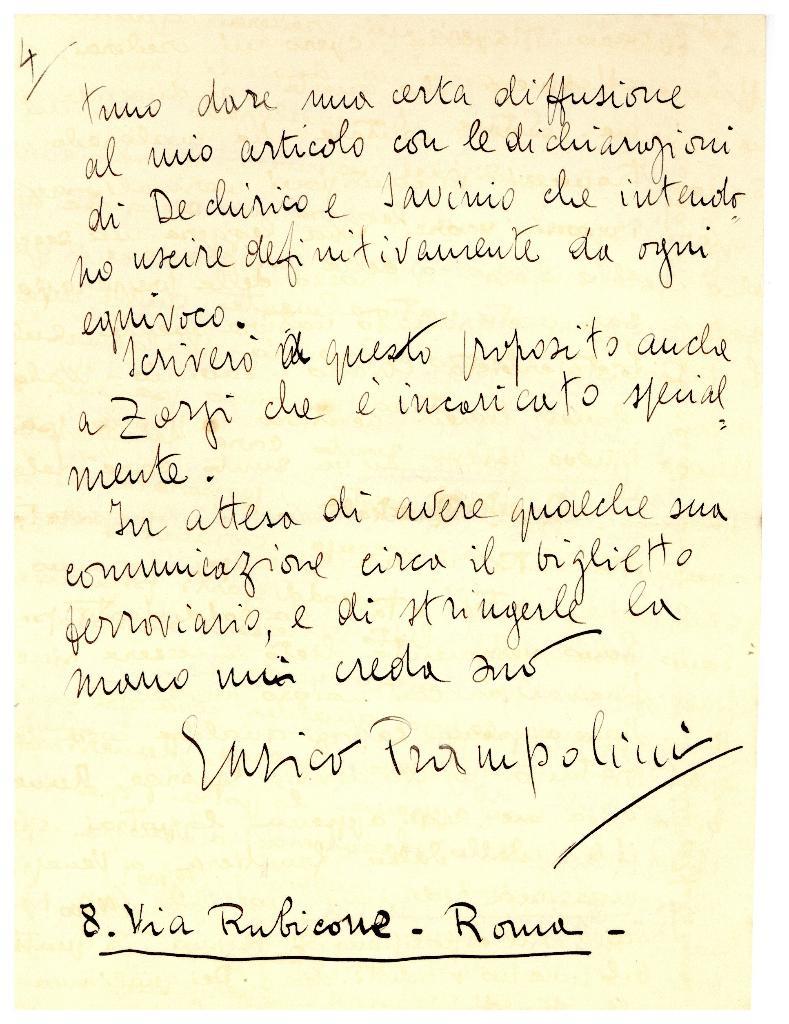 4/
tuno dare una certa diffusione
al mio articolo con le dichiarazioni
di De chirico e Savinio che intendo=
no uscire definitivamente da ogni
equivoco.
Scriverò a questo proposito anche
a Zorzi che è incaricato special=
mente.
In attesa di avere qualche sua
comunicazione circa il biglietto
ferroviario, e di stringerle la
mano mi creda suo
Enrico Prampolini
8. Via Rubicone - Roma -